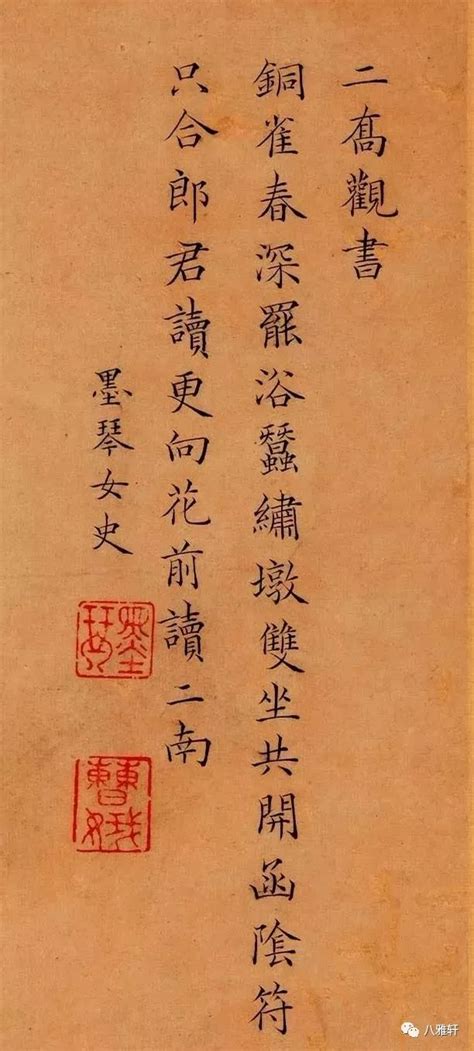 二喬觀書
銅雀春深罷浴蠶繡墩雙坐共開函陰符
只合郎君讀更向花前讀二南
墨琴女史
墨琴
八雅轩